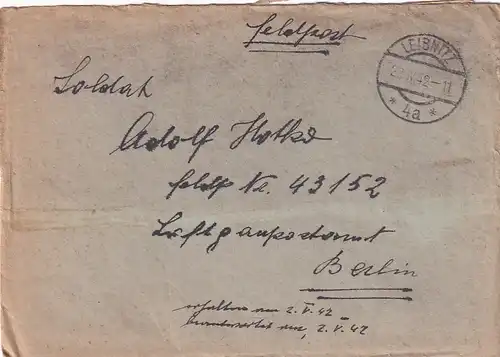 Feldpost
LEIBNITZ
4a
Soldat
Adolf Hotko
Feldp Nr. 43152
Luftgaupostamt
Berlin
erhalten am 2. V. 42
beantwortet am, 2. V. 42